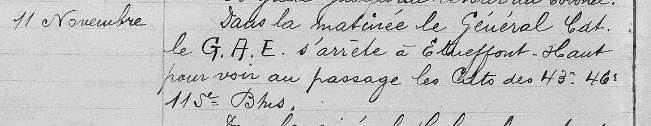 11 Novembre Dans la matinée le Général Cdt.
le G.A.E. s'arrête à Etueffont-Haut
pour voir au passage les Cdts des 43e 46e
115e Bns.